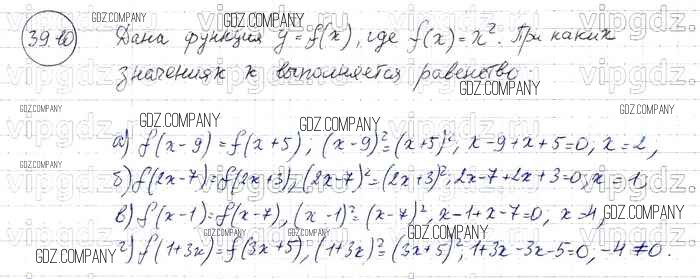 39.10 Дана функция y = f(x), где f(x) = x². При каких
значениях x выполняется равенство.
а) f(x-9) = f(x+5); (x-9)² = (x+5)², x-9+x+5=0, x=2,
б) f(2x-7) = f(2x+3), (2x-7)² = (2x+3)²; 2x-7+2x+3=0, x=1,
в) f(x-1) = f(x-7), (x-1)² = (x-7)², x-1+x-7=0, x=4,
г) f(1+3x) = f(3x+5), (1+3x)² = (3x+5)²; 1+3x-3x-5=0, -4≠0.
GDZ.COMPANY
vipgdz